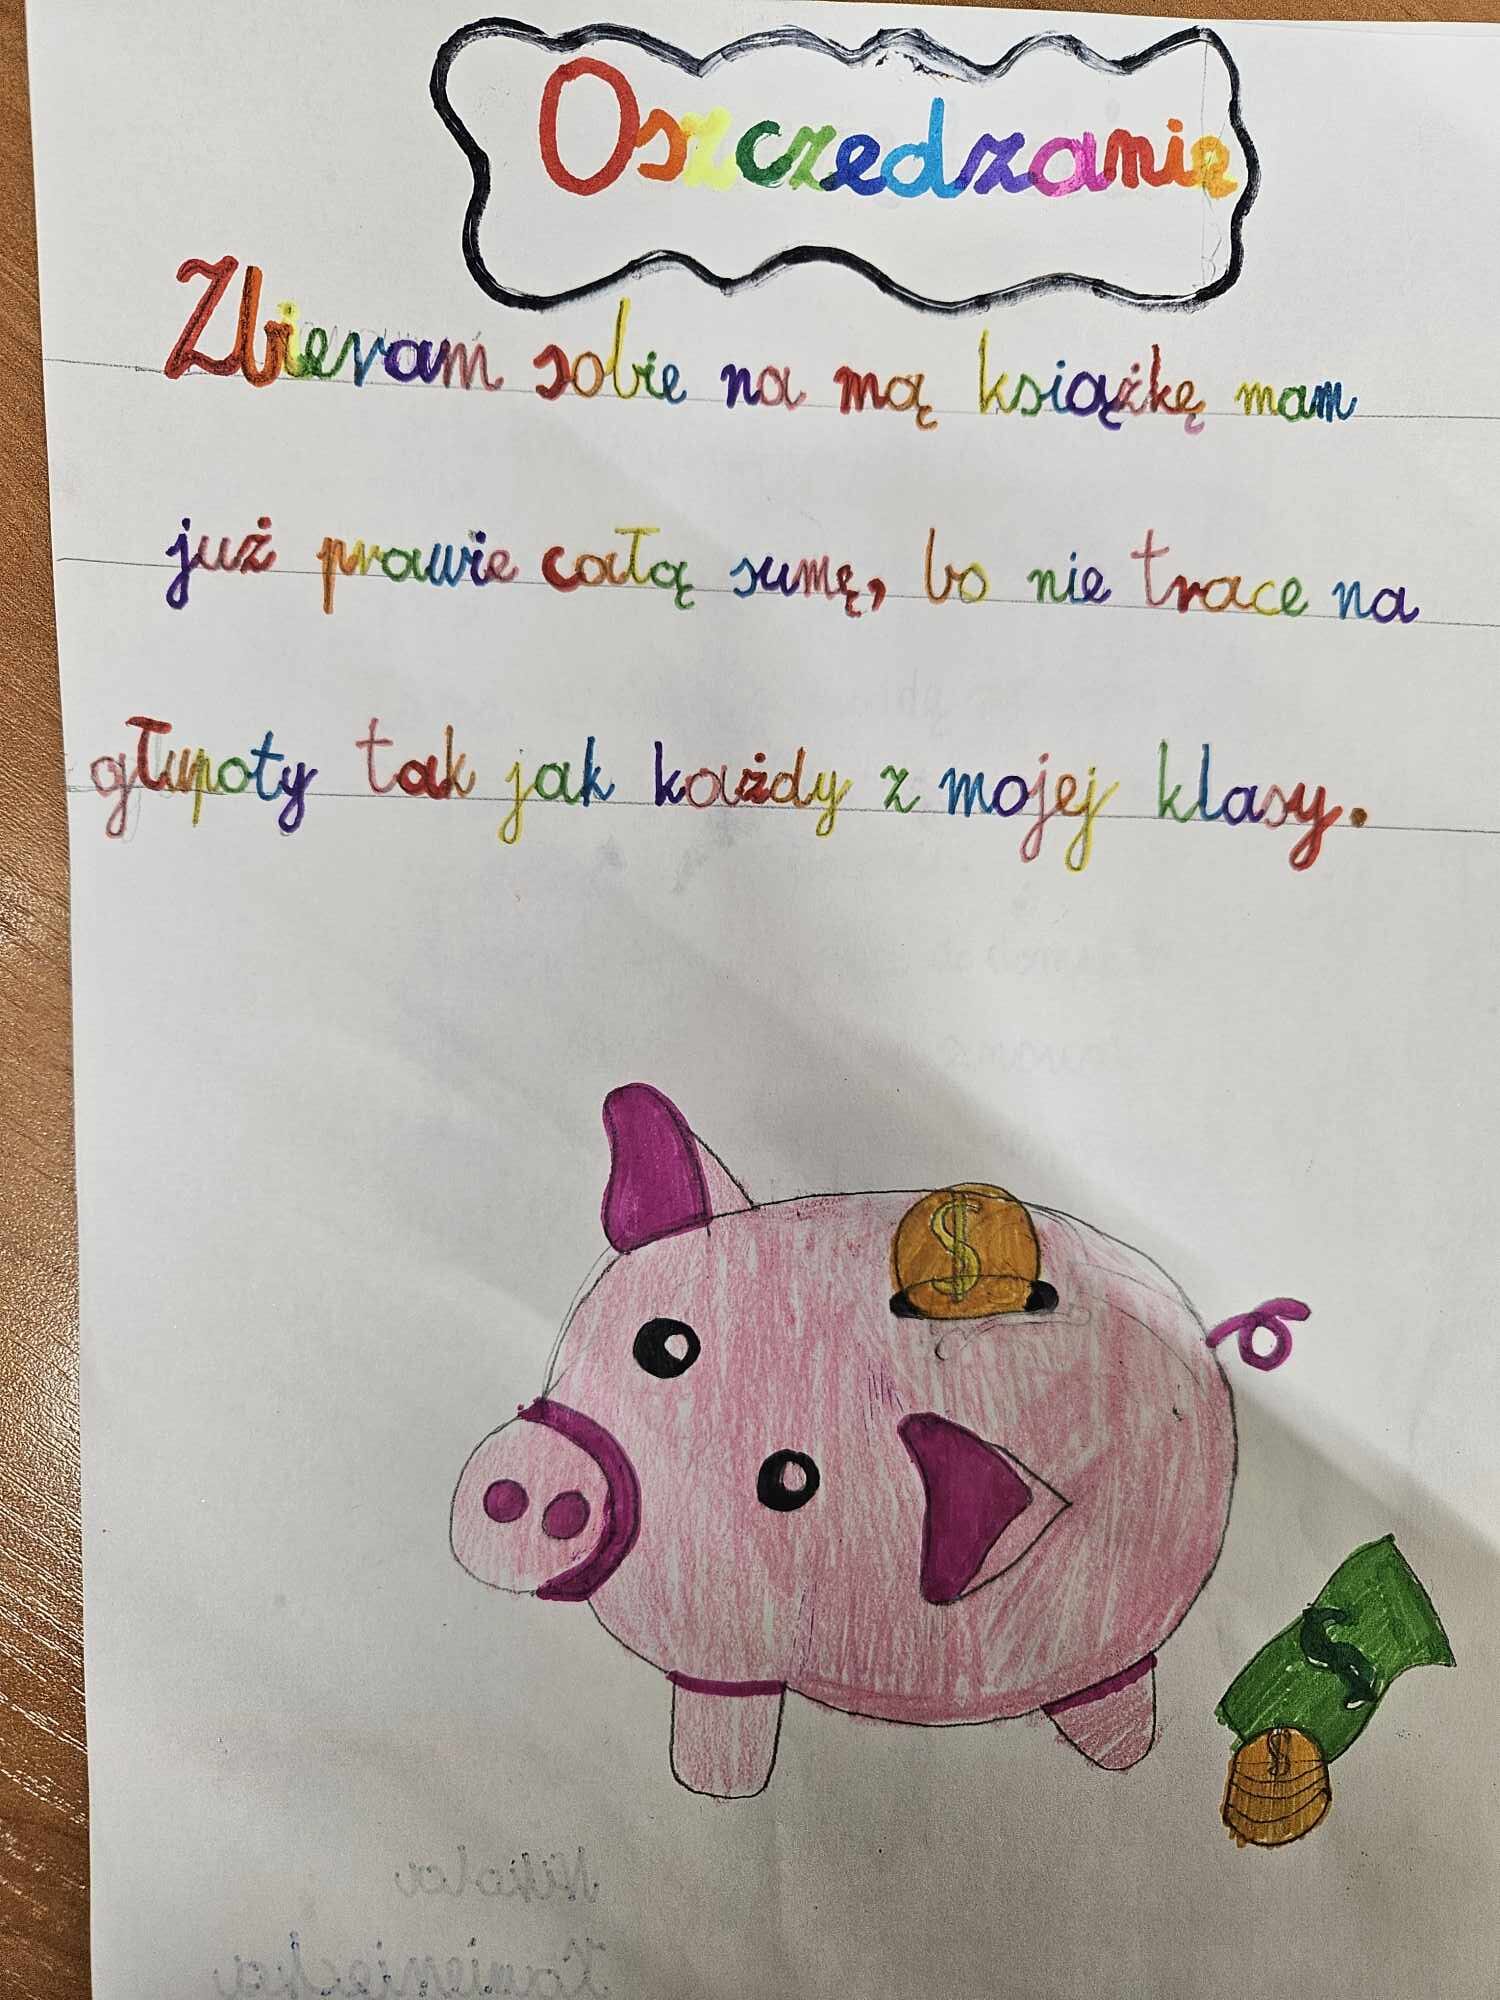 Oszczedzanie
Zbieram sobie na mą książkę mam
już prawie całą sumę, bo nie trace na
głupoty tak jak każdy z mojej klasy.
$
$
$
Nikola
Kamieniecka